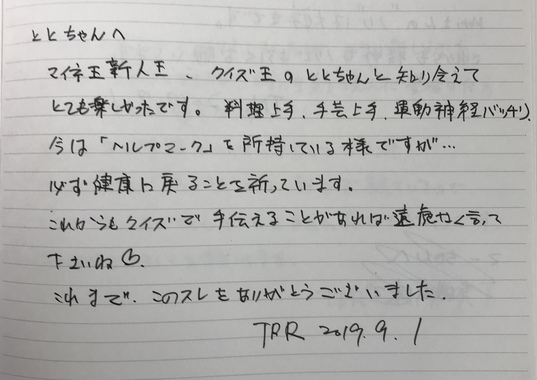 ととちゃんへ
マイネ王新人王、クイズ王のととちゃんと知り合えて
とても楽しかったです。料理上手、手芸上手、運動神経バッチリ
今は「ヘルプマーク」を所持している様ですが…
必ず健康に戻ることを祈っています。
これからもクイズで手伝えることがあれば遠慮なく言って
下さいね
これまで、このスレをありがとうございました。
TRR 2019.9.1